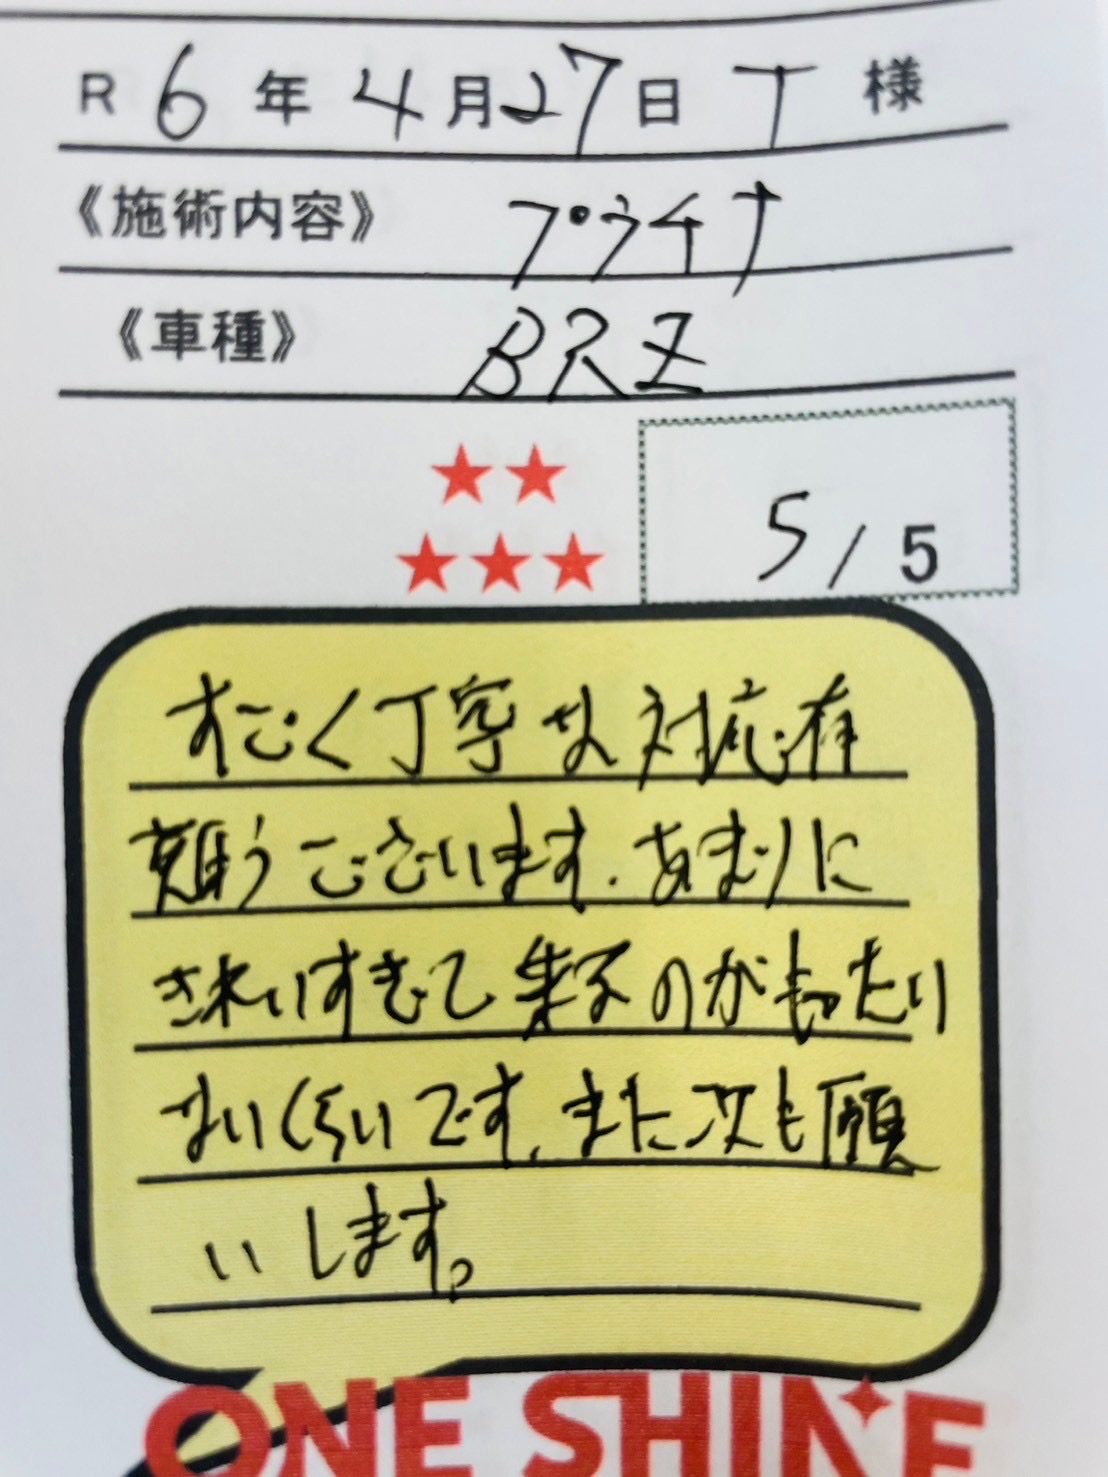 R 6 年 4 月 27 日 T 様
《施術内容》 プウチナ
《車種》 BRZ
★★
★★★ 5 / 5
すごく丁寧な対応有
難うございます。あまりに
きれいすぎて乗るのがもったい
ないくらいです。また次も願
いします。
ONE SHINE